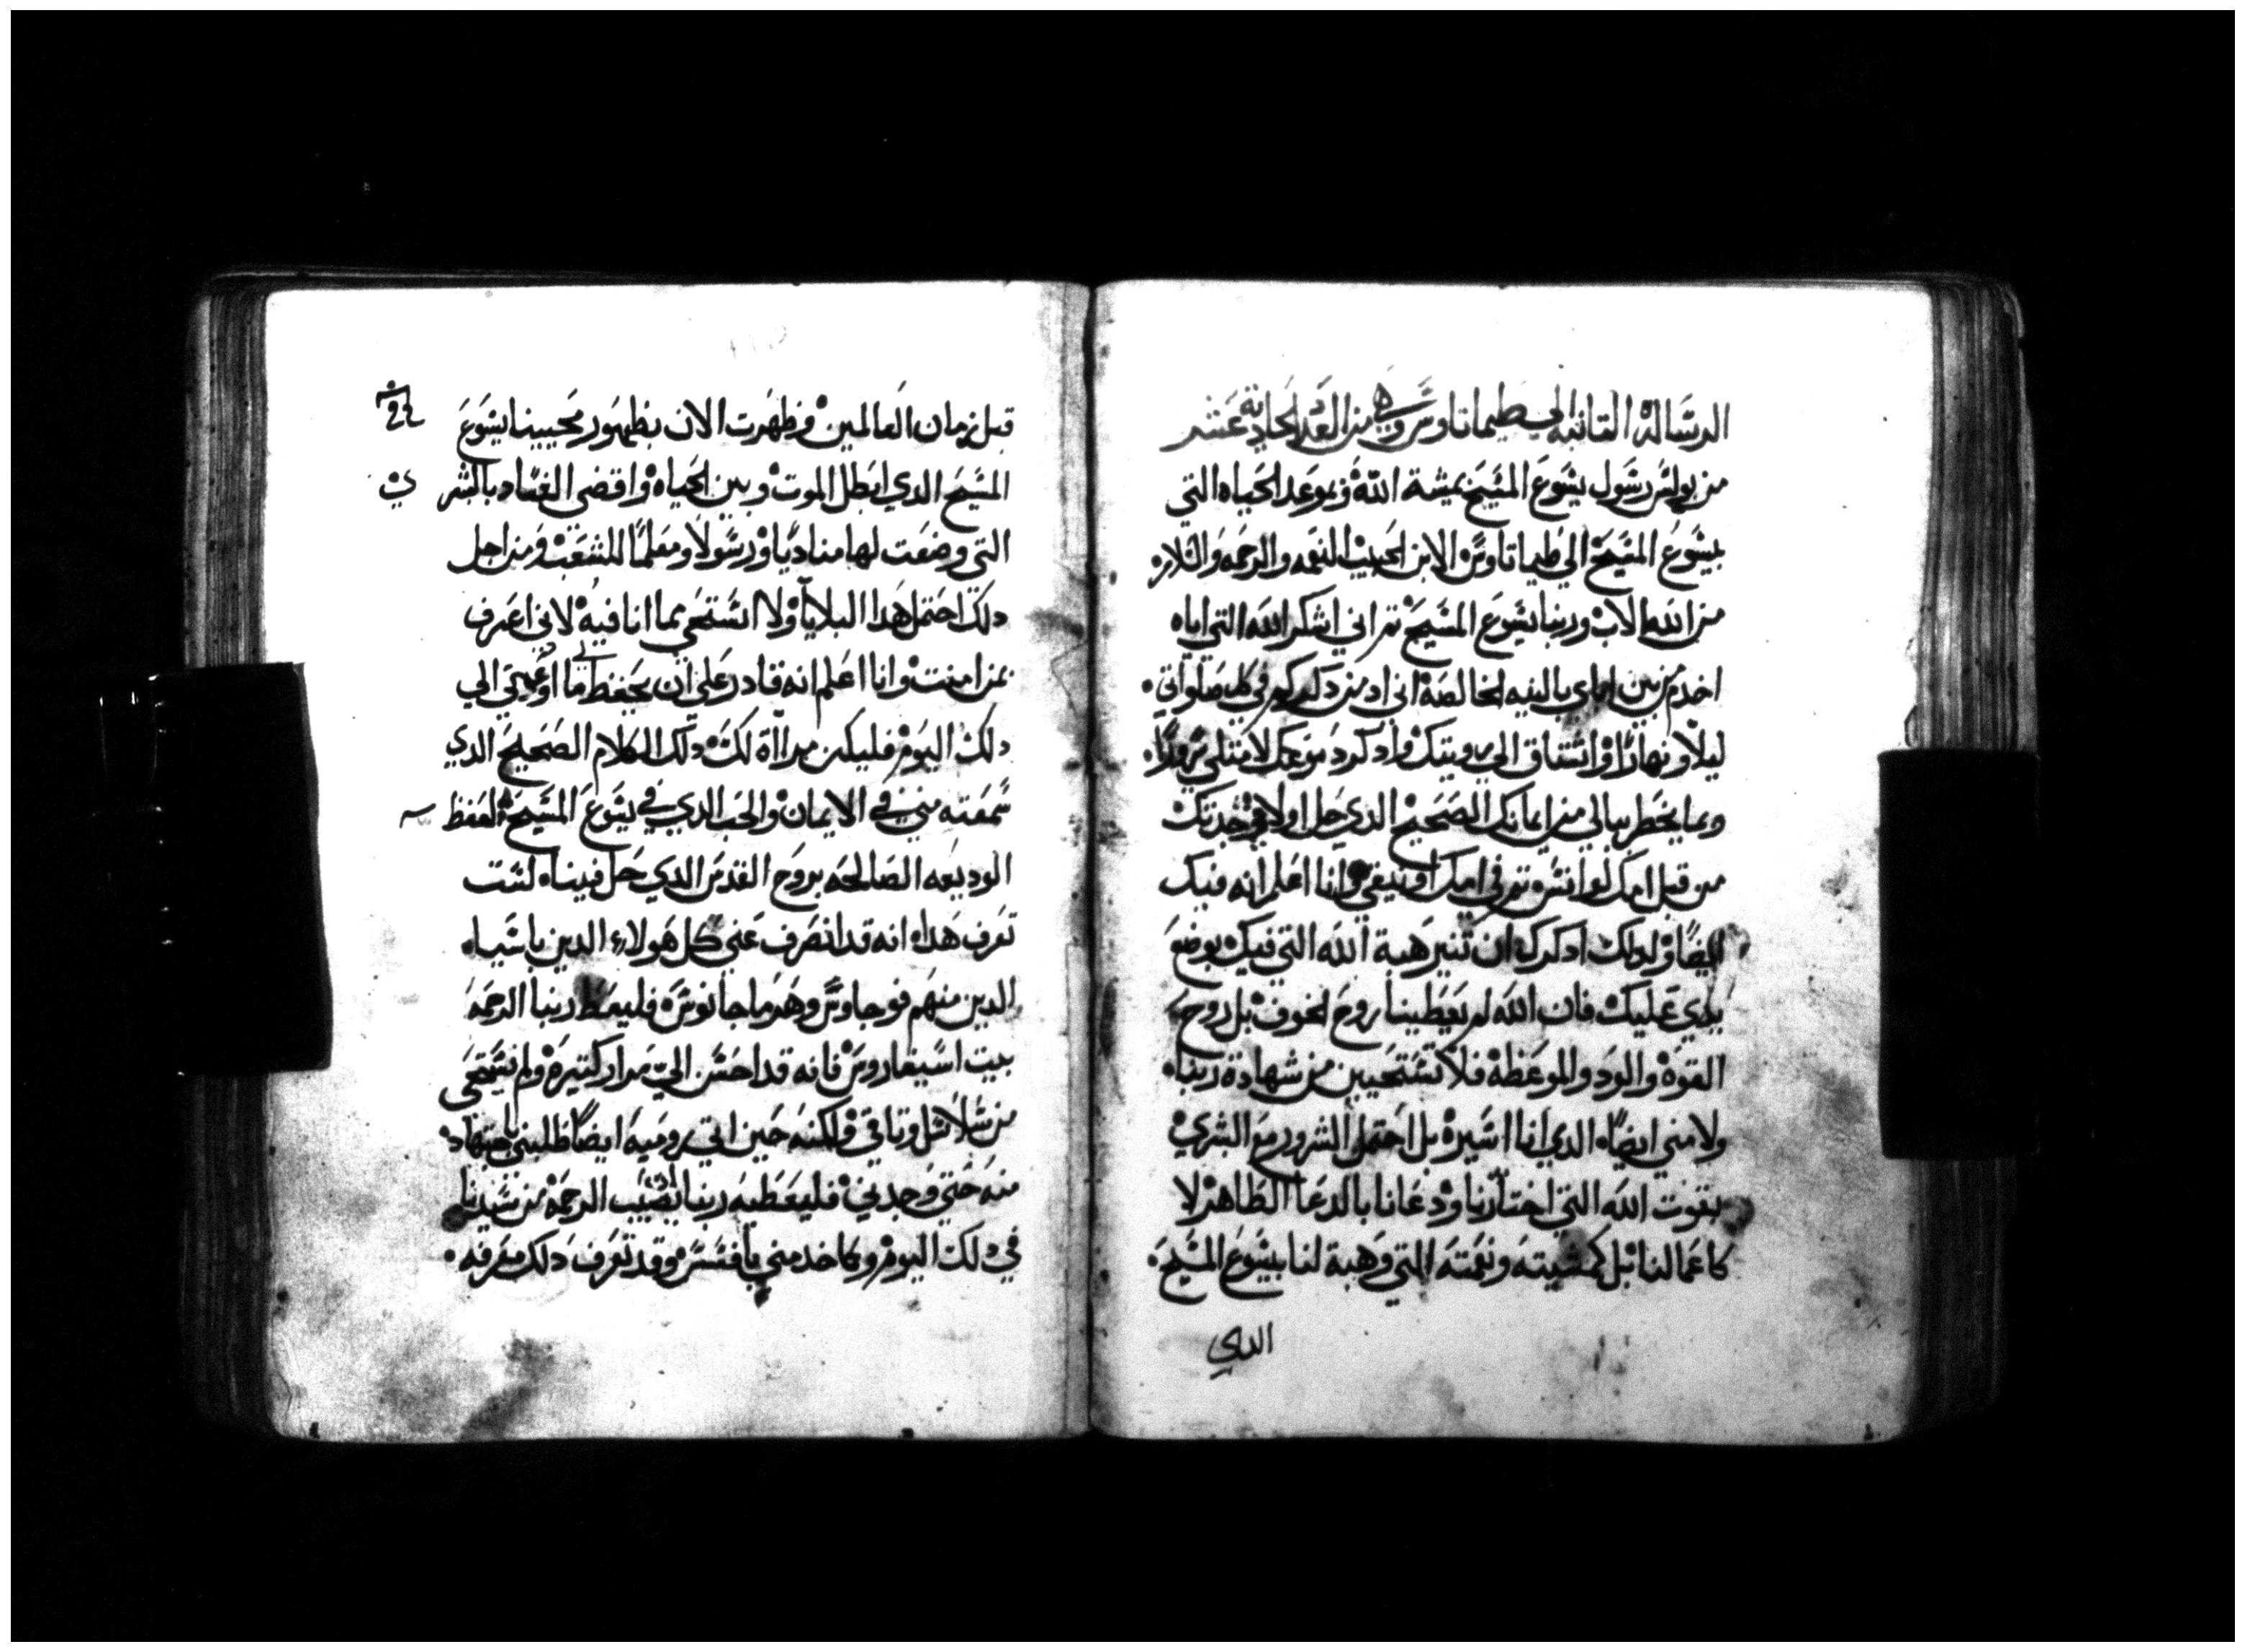 الرسالة التانيه الي طيماتاوس وهي من العدد الحادية عشر
من بولس رسول يسوع المسيح بمشية الله وبموعد الحياه التي
بيسوع المسيح الي طيماتاوس الابن الحبيب النعمه والرحمه والسلام
من الله الاب وربنا يسوع المسيح تم اني اشكر الله التي اياه
اخدم من بين اباي بالنيه الخالصه اني ادمن دكرك في كل صلواتي
ليلا ونهارا واشتاق الي رويتك وادكر دموعك لامتلي سرورا
وبما يخطر ببالي من ايمانك الصحيح الدي حل اولا في جدتك
من قبل امك لوانيس تم في امك اونيقي وانا اعلم انه فيك
ايضا ولدلك ادكرك ان تنير هبة الله التي فيك بوضع
يدي عليك فان الله لم يعطينا روح الخوف بل روح
القوه والود والموعظه فلا تستحيين من شهادة ربنا
ولا مني ايضا الدي انا اسيره بل احتمل الشرور مع البشري
بقوت الله التي اختارنا ودعانا بالدعا الطاهر لا
كاعمالنا بل كمشيته ونعمته التي وهبة لنا بيسوع المسيح
الدي
قبل زمان العالمين وظهرت الان بظهور محيينا يسوع
المسيح الدي ابطل الموت وبين الحياه واقضي الفساد بالبشر
ي
التي وضعت لها مناديا ورسولا ومعلما للشعب ومن اجل
دلك احتمل هدا البلايا ولا استحي بما انا فيه لاني اعرف
بمن امنت وانا اعلم انه قادر علي ان يحفظ لي ما اودعني الي
دلك اليوم فليكن مراة لك دلك الكلام الصحيح الدي
سمعته مني في الايمان والحب الدي في يسوع المسيح احفظ
الوديعه الصالحه بروح القدس الدي حل فينا لست
تعرف هدا انه قد انصرف عني كل هولاء الدين باسيا
الدين منهم فوجاوس وهرماجانوس فليعط ربنا الرحمه
بيت اسيفاروس فانه قد احسن الي مرار كتيره ولم يستحي
من سلاسل وتاقي ولكنه حين اتي روميه ايضا طلبني باجتهاد
منه حتي وجدني فليعطيه ربنا نصيب الرحمه من سيدنا
في دلك اليوم وكما خدمني بافسس وقد تعرف دلك معرفه